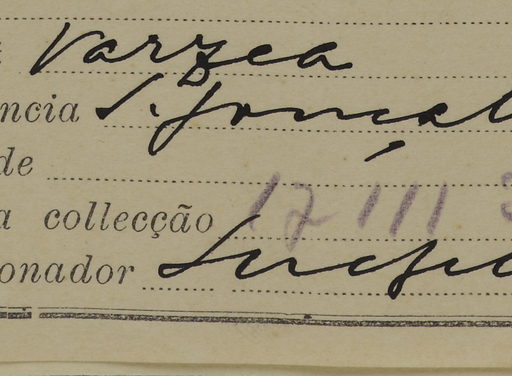 Varzea
ncia S. Gonçal
de
a collecção 17 III
onador